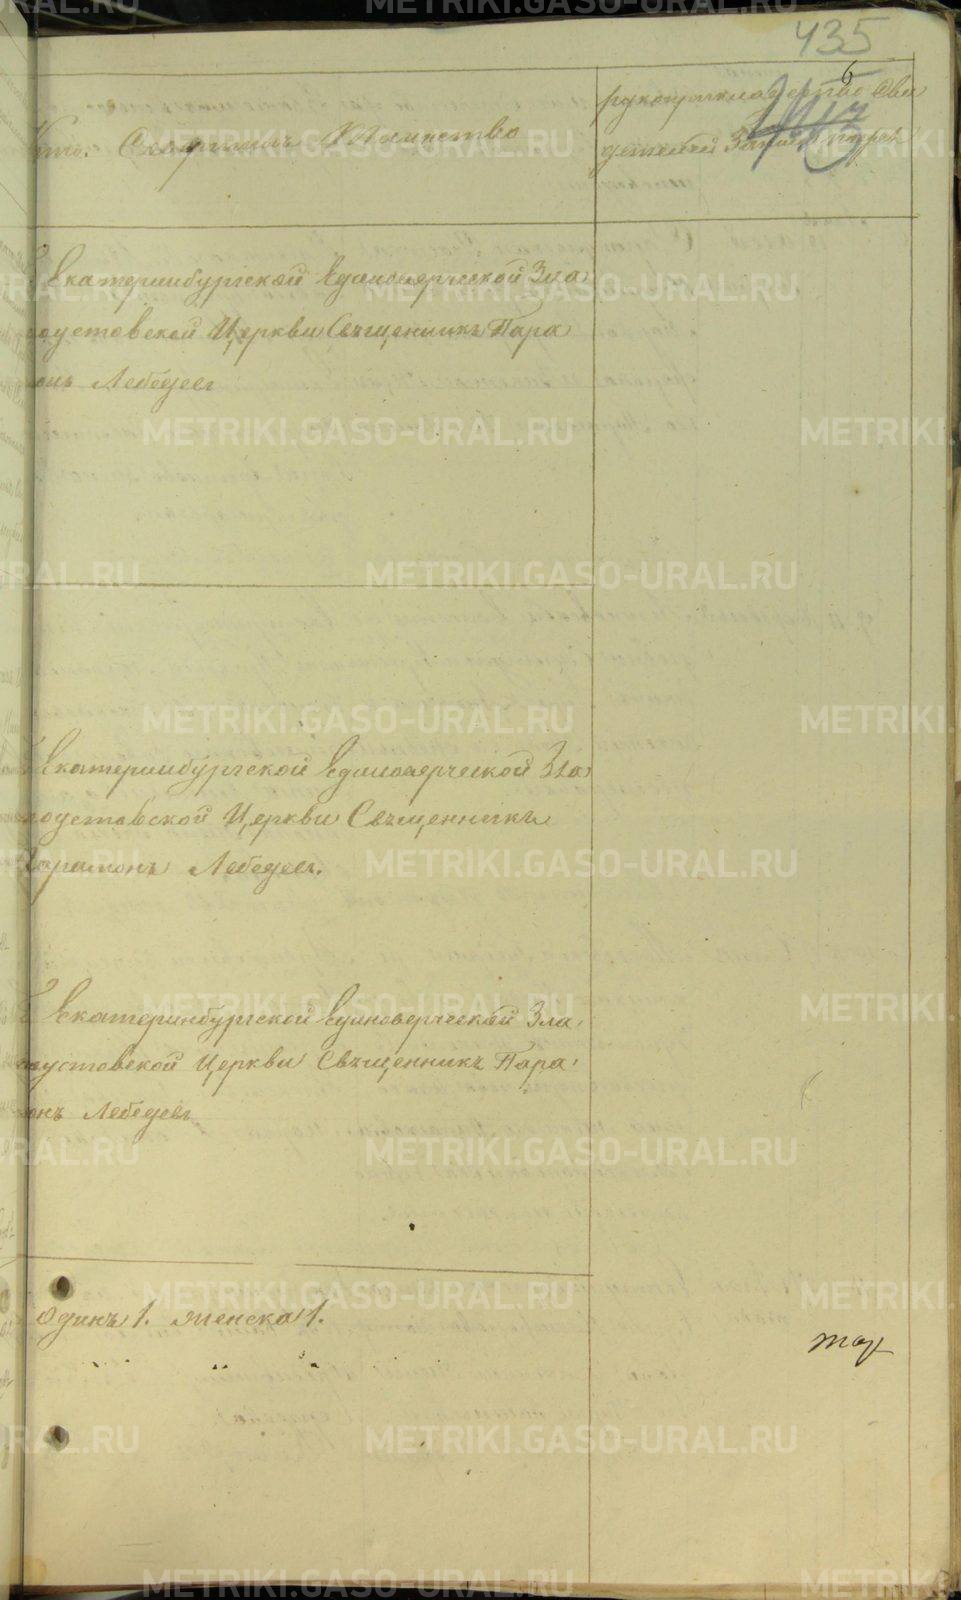 435
6
Кто Совершилъ Таинство
рукоприкладство Сви
детелей
Екатеринбургской Единоверческой Зла
оустовской Церкви Священникъ Пара
онъ Лебедевъ
Екатеринбургской Единоверческой Зла
оустовской Церкви Священникъ
Парамонъ Лебедевъ.
Екатеринбургской Единоверческой Зла
оустовской Церкви Священникъ Пара
онъ Лебедевъ
одинъ 1. женска 1.
METRIKI.GASO-URAL.RU